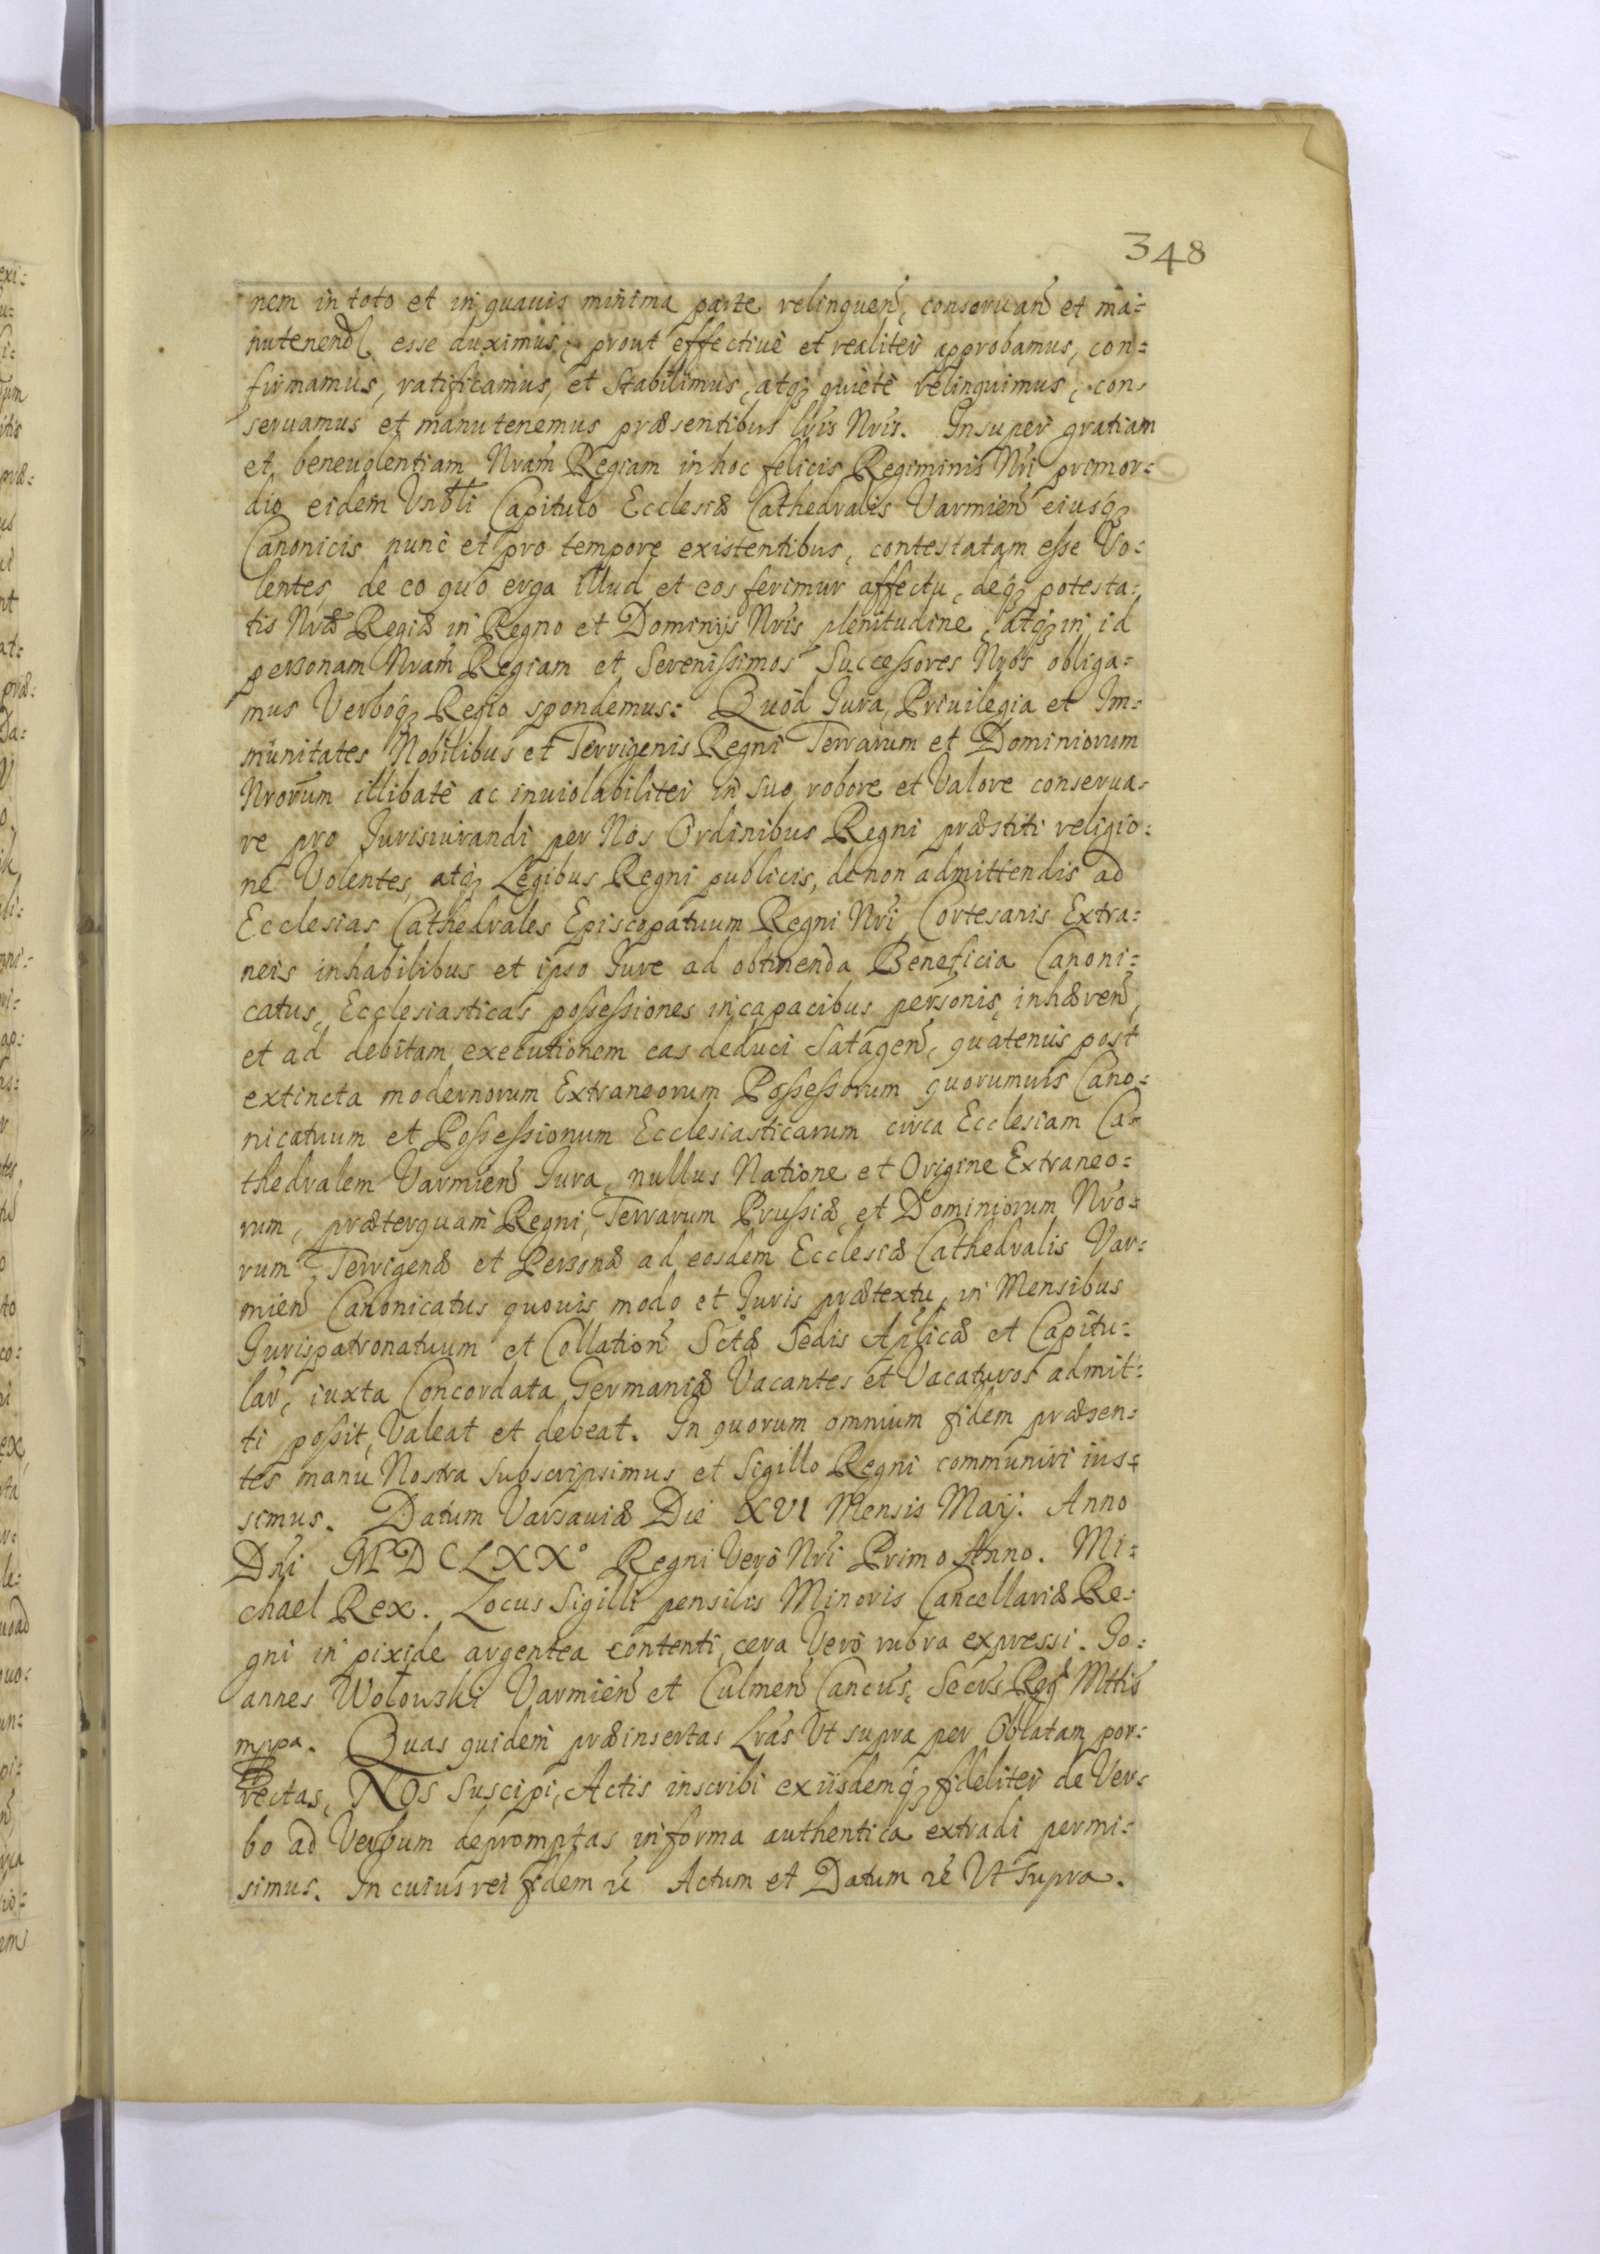 348
nem in toto et in quauis minima parte relinquen̄, conseruan̄ et ma-
nutenend̄ esse duximus, prout effectiuè et realiter approbamus, con=
firmamus, ratificamus, et stabilimus, atq̃ quietè relinquimus, con-
seruamus et manutenemus præsentibus Lr̃is Nr̃is. Insuper gratiam
et beneuolentiam Nr̃am Regiam in hoc felicis Regiminis Nr̃i primor=
dio eidem Vn̄bli Capitulo Ecclesiæ Cathedralis Varmien̄ eiusq̃
Canonicis nunc et pro tempore existentibus, contestatam esse Vo=
lentes, de eo quo erga illud et eos ferimur affectu, deq̃ potesta=
tis Nr̃æ Regiæ in Regno et Dominijs Nr̃is plenitudine, atq̃ in id
personam Nr̃am Regiam et Serenissimos Successores Nr̃os obliga=
mus Verboq̃ Regio spondemus: Quod Jura, Priuilegia et Im=
munitates Nobilibus et Terrigenis Regni Terrarum et Dominiorum
Nr̃orum illibatè ac inuiolabiliter in suo robore et Valore conserua=
re pro Jurisiurandi per Nos Ordinibus Regni præstiti religio=
ne Volentes, atq̃ Legibus Regni publicis, de non admittendis ad
Ecclesias Cathedrales Episcopatuum Regni Nr̃i, Cortesanis Extra=
neis inhabilibus et ipso Jure ad obtinenda Beneficia Canoni=
catus, Ecclesiasticas possessiones incapacibus personis, inhæren̄,
et ad debitam executionem eas deduci satagen̄, quatenus post
extincta modernorum Extraneorum Possessorum quorumuis Cano=
nicatuum et Possessionum Ecclesiasticarum circa Ecclesiam Ca=
thedralem Varmien̄ Jura, nullus Natione et Origine Extraneo=
rum, præterquam Regni, Terrarum Prussiæ, et Dominiorum Nr̃o=
rum Terrigenæ et Personæ ad eosdem Ecclesiæ Cathedralis Var=
mien̄ Canonicatus quouis modo et Juris prætextu, in Mensibus
Jurispatronatuum et Collation̄ Sctæ Sedis Aplicæ et Capitu=
lar̄, iuxta Concordata Germaniæ Vacantes et Vacaturos admit=
ti possit, Valeat et debeat. In quorum omnium fidem præsen=
tes manu Nostra subscripsimus et Sigillo Regni communiri ius=
simus. Datum Varsauiæ Die XVI Mensis Maij. Anno
Dn̄i MDCLXX° Regni Verò Nr̃i Primo Anno. Mi=
chael Rex. Locus Sigilli pensilis Minoris Cancellariæ Re=
gni in pixide argentea contenti, cera Verò rubra expressi. Jo=
annes Wołowski Varmien̄ et Culmen̄ Cancus, Secrs Reg Mttis
mppa. Quas quidem præinsertas Lr̃as Vt supra per Oblatam por=
rectas, NOS suscipi, Actis inscribi exiisdemq̃ fideliter de Ver=
bo ad Verbum depromptas in forma authentica extradi permi=
simus. In cuius rei fidem &c̃ Actum et Datum &c̃ Vt supra.